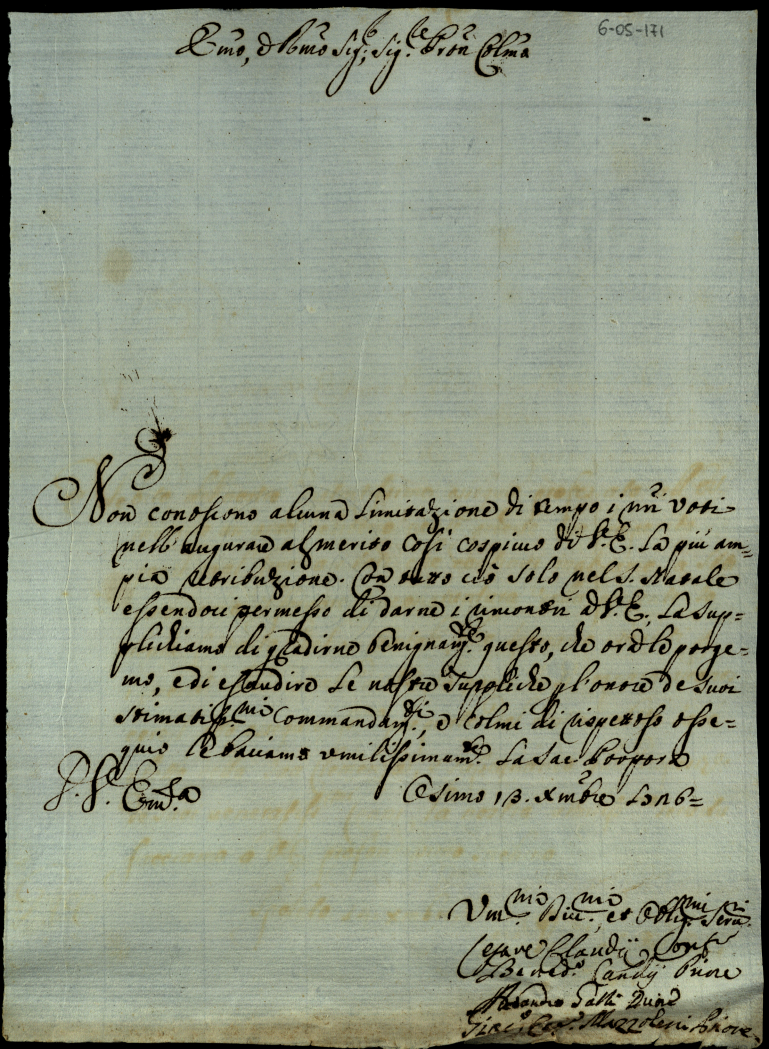 6-05-171
Emo, e Rmo Sigr, Sigr Pron Colmo
Non conoscono alcuna Limitazione di tempo i nri voti
nell'augurare al merito così cospicuo di V. E. La più am=
pia retribuzione. Con tutto ciò solo nel S. Natale
essendoci permesso di darne i rincontri a V. E., La sup=
plichiamo di gradirne benignamte questo, che ora le porge=
mo, e di essaudire Le nostre suppliche pl'onore de suoi
stimatissmi commandamti, e colmi di rispettoso osse=
quio le baciamo umilissimamte La Sac Porpora
D. V. Emza
Esimo 13. Xmbre
Umi Divmi, et Obligmi Servri
Cesare Claudij Confre
Bened. Priore
Galli
Mazzoleni Priore